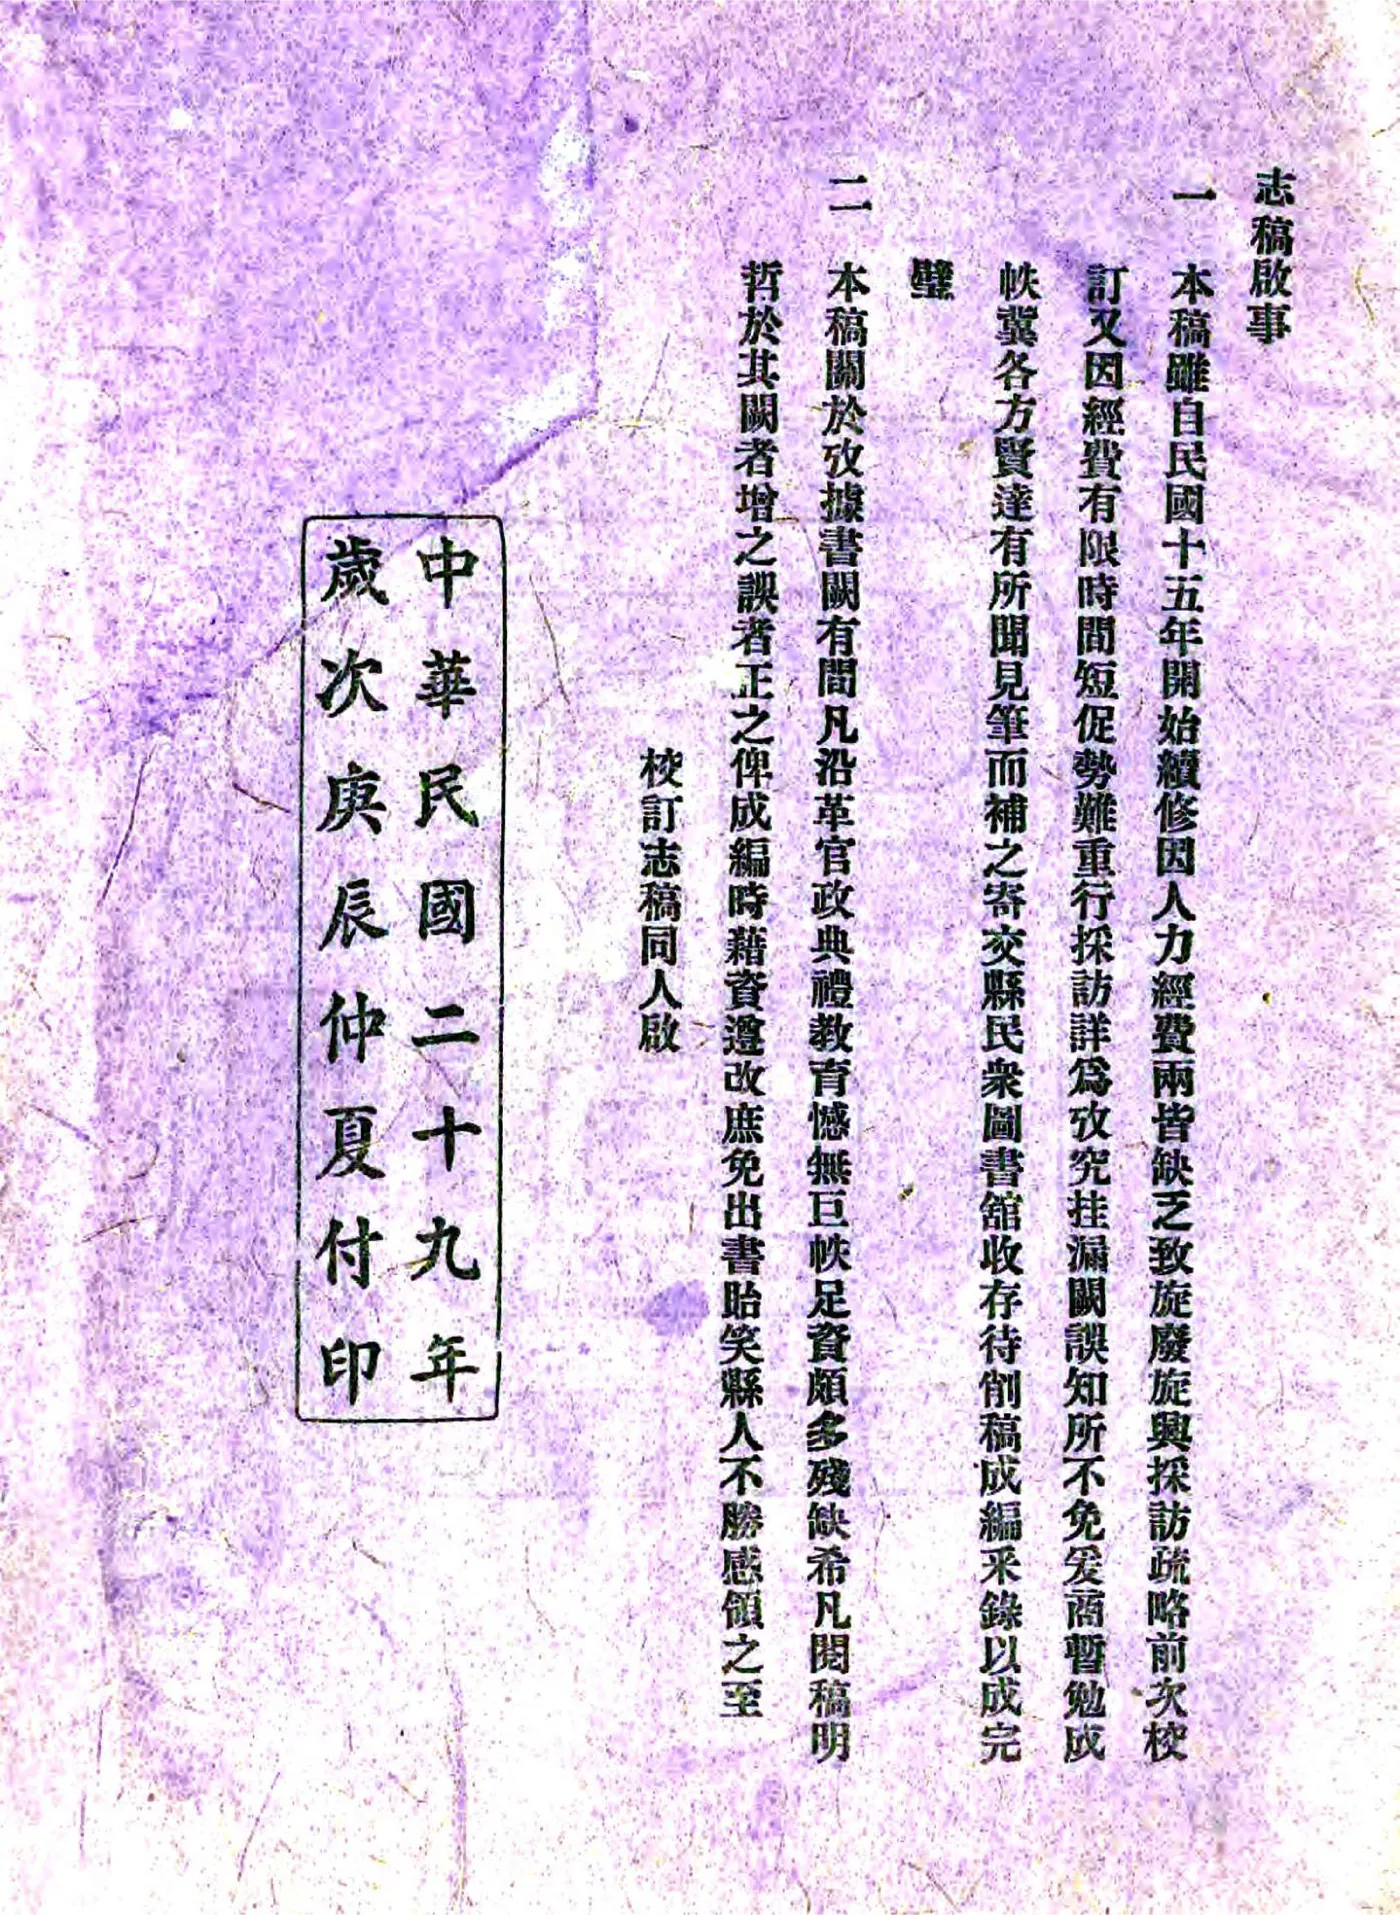 志稿啟事
一 本稿雖自民國十五年開始續修因人力經費兩皆缺乏致旋廢旋興採訪疏略前次校
訂又因經費有限時間短促勢難重行採訪詳爲攷究挂漏闕誤知所不免爰商暫勉成
帙冀各方賢達有所聞見筆而補之寄交縣民衆圖書舘收存待削稿成編釆錄以成完
璧
二 本稿關於攷據書闕有間凡沿革官政典禮教育憾無巨帙足資頗多殘缺希凡閱稿明
哲於其闕者增之誤者正之俾成編時藉資遵改庶免出書貽笑縣人不勝感領之至
校訂志稿同人啟
中華民國二十九年
歲次庚辰仲夏付印